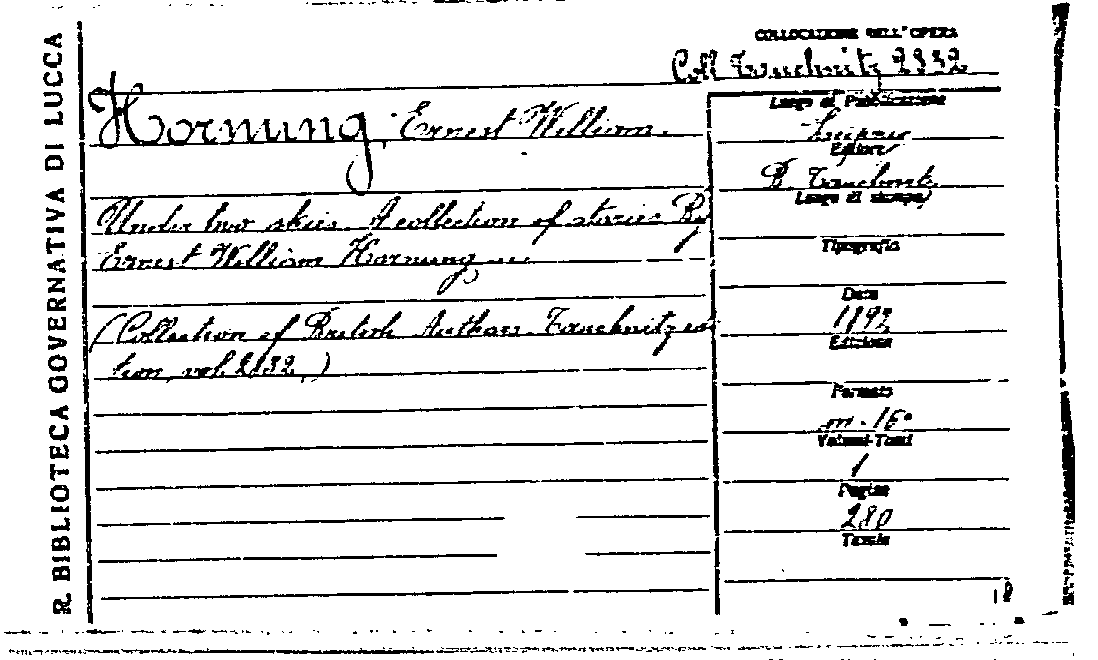 R. BIBLIOTECA GOVERNATIVA DI LUCCA
COLLOCAZIONE DELL'OPERA
Coll Tauchnitz 2832
Hornung, Ernest William.
Under two skies. A collection of stories By
Ernest William Hornung
(Collection of British Authors. Tauchnitz edi
tion, vol. 2832,)
Luogo di Pubblicazione
Leipzig
Editore
B. Tauchnitz
Luogo di stampa
Tipografia
Data
1892
Edizione
Formato
in-16°
Volumi-Tomi
1
Pagine
280
Tavole